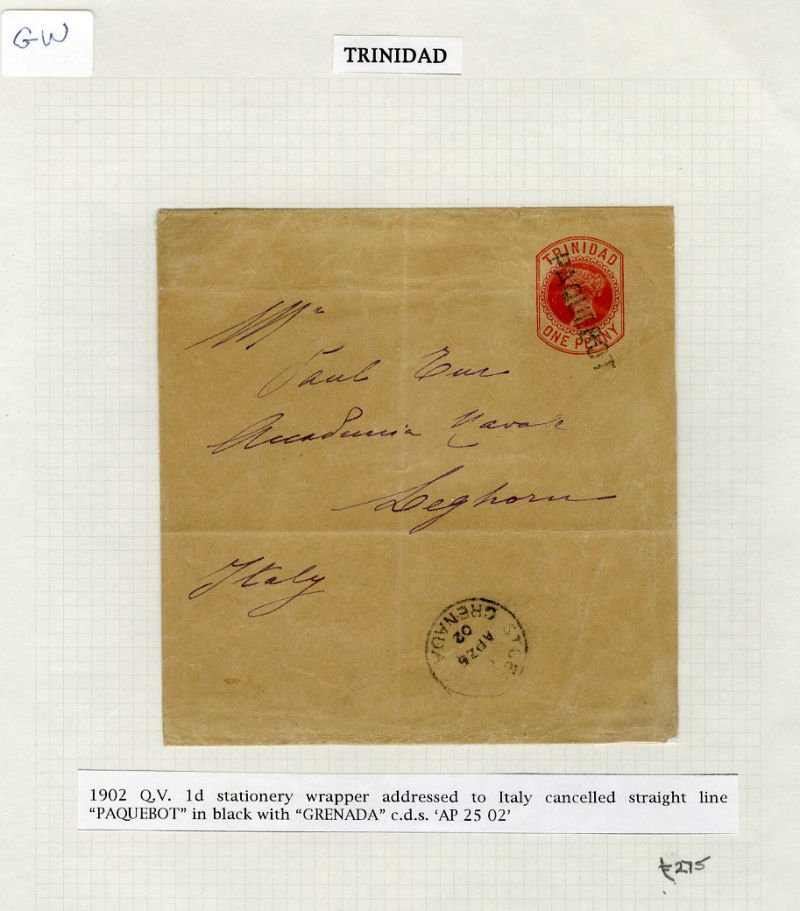 GW
TRINIDAD
TRINIDAD
PAQUEBOT
ONE PENNY
Mr
Paul
Accademia Navale
Leghorn
Italy
ST GE
GRENADA
AP 25
02
1902 Q.V. 1d stationery wrapper addressed to Italy cancelled straight line
“PAQUEBOT” in black with “GRENADA” c.d.s. ‘AP 25 02’
£275